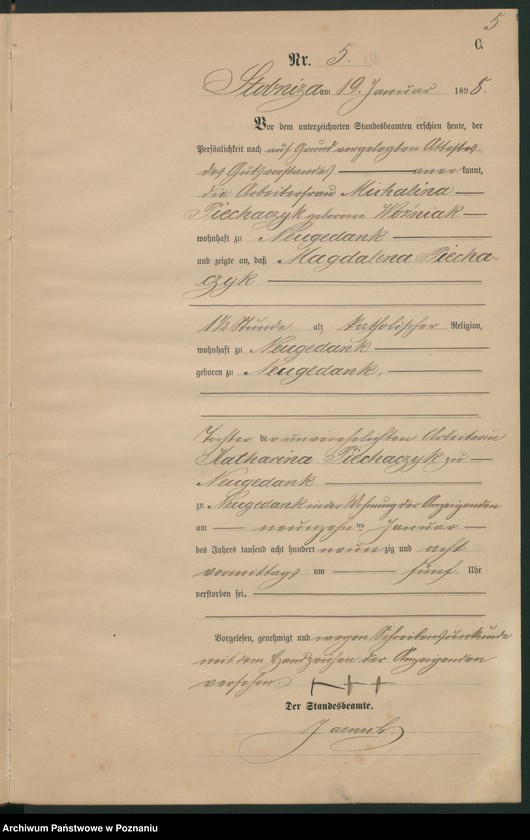 5
C.
Nr. 5.
Stobniza am 19. Januar 1898.
Vor dem unterzeichneten Standesbeamten erschien heute, der
Persönlichkeit nach auf Grund vorgelegten Attestes
des Gutsvorstandes anerkannt,
die Arbeiterfrau Michalina
Piechaczyk geborene Woźniak
wohnhaft zu Neugedank
und zeigte an, daß Magdalena Piecha-
czyk
1½ Stunde alt, katholischer Religion,
wohnhaft zu Neugedank
geboren zu Neugedank,
Tochter der unverehelichten Arbeiterin
Katharina Piechaczyk zu
Neugedank
zu Neugedank in der Wohnung der Anzeigenden
am neunzehnten Januar
des Jahres tausend acht hundert neunzig und acht
vormittags um fünf Uhr
verstorben sei.
Vorgelesen, genehmigt und wegen Schreibensunkunde
mit dem Handzeichen der Anzeigenden
versehen. +++
Der Standesbeamte.
Archiwum Państwowe w Poznaniu